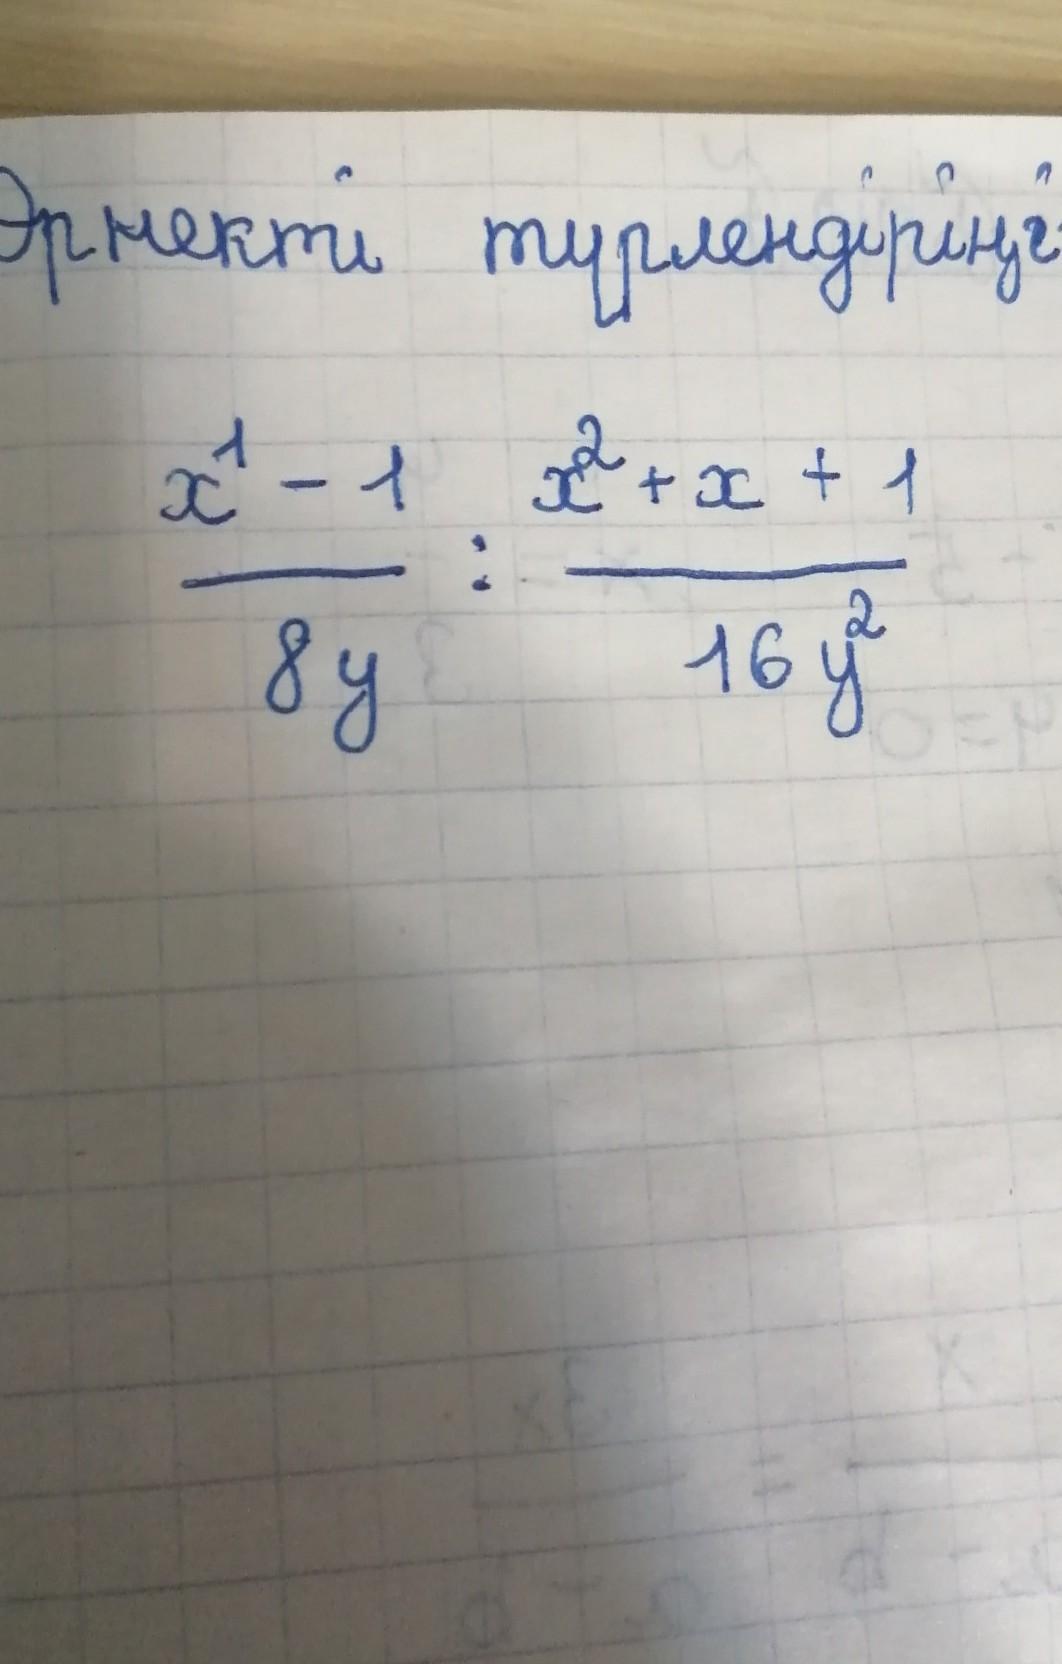 Өрнекті түрлендіріңі
x¹ - 1 : x² + x + 1
8y 16y²